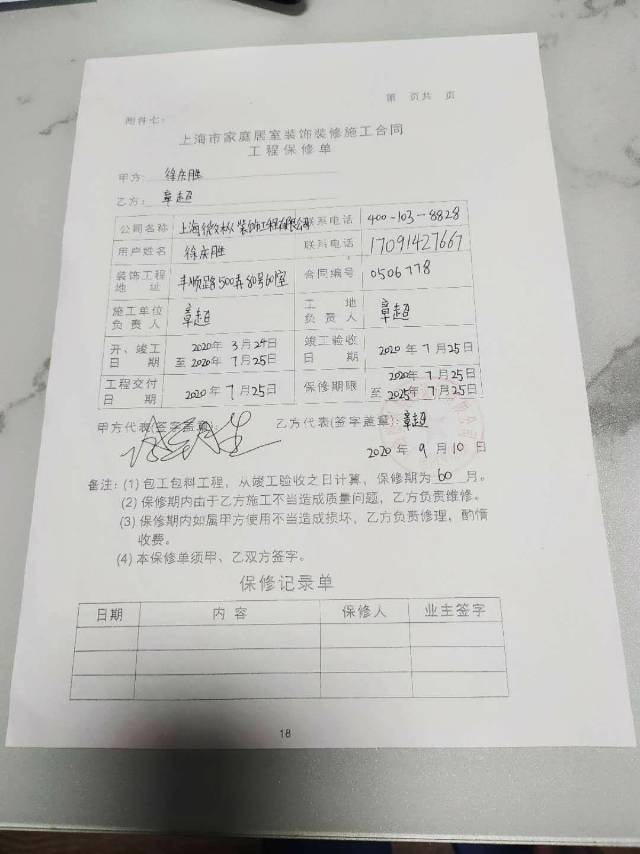 第 页共 页
附件七：
上海市家庭居室装饰装修施工合同
工程保修单
甲方：徐庆胜
乙方：章超
公司名称 上海 装饰工程有限公司 联系电话 400-103-8828
用户姓名 徐庆胜 联系电话 17091427667
装饰工程地址 丰顺路500弄80号601室 合同编号 0506778
施工单位负责人 章超 工地负责人 章超
开、竣工日期 2020年3月24日至2020年7月25日 竣工验收日期 2020年7月25日
工程交付日期 2020年7月25日 保修期限 2020年7月25日至2025年7月25日
甲方代表(签字盖章)： 乙方代表(签字盖章)：章超
2020年9月10日
备注：(1) 包工包料工程，从竣工验收之日计算，保修期为 60 月。
(2) 保修期内由于乙方施工不当造成质量问题，乙方负责维修。
(3) 保修期内如属甲方使用不当造成损坏，乙方负责修理，酌情
收费。
(4) 本保修单须甲、乙双方签字。
保修记录单
日期 内容 保修人 业主签字
18